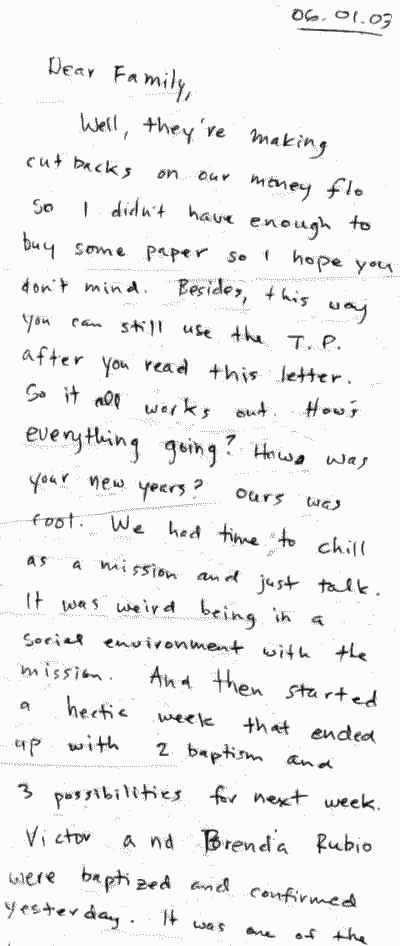 06.01.03
Dear Family,
Well, they're making
cutbacks on our money flo
so I didn't have enough to
buy some paper so I hope you
don't mind. Besides, this way
you can still use the T.P.
after you read this letter.
So it all works out. How's
everything going? How was
your new years? Ours was
cool. We had time to chill
as a mission and just talk.
It was weird being in a
social environment with the
mission. And then started
a hectic week that ended
up with 2 baptism and
3 possibilities for next week.
Victor and Brenda Rubio
were baptized and confirmed
yesterday. It was one of the